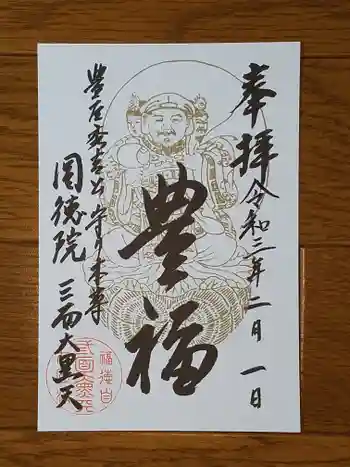 奉拝
令和二年二月一日
豊福
豊臣秀吉公守り本尊
三面大黒天
圓徳院